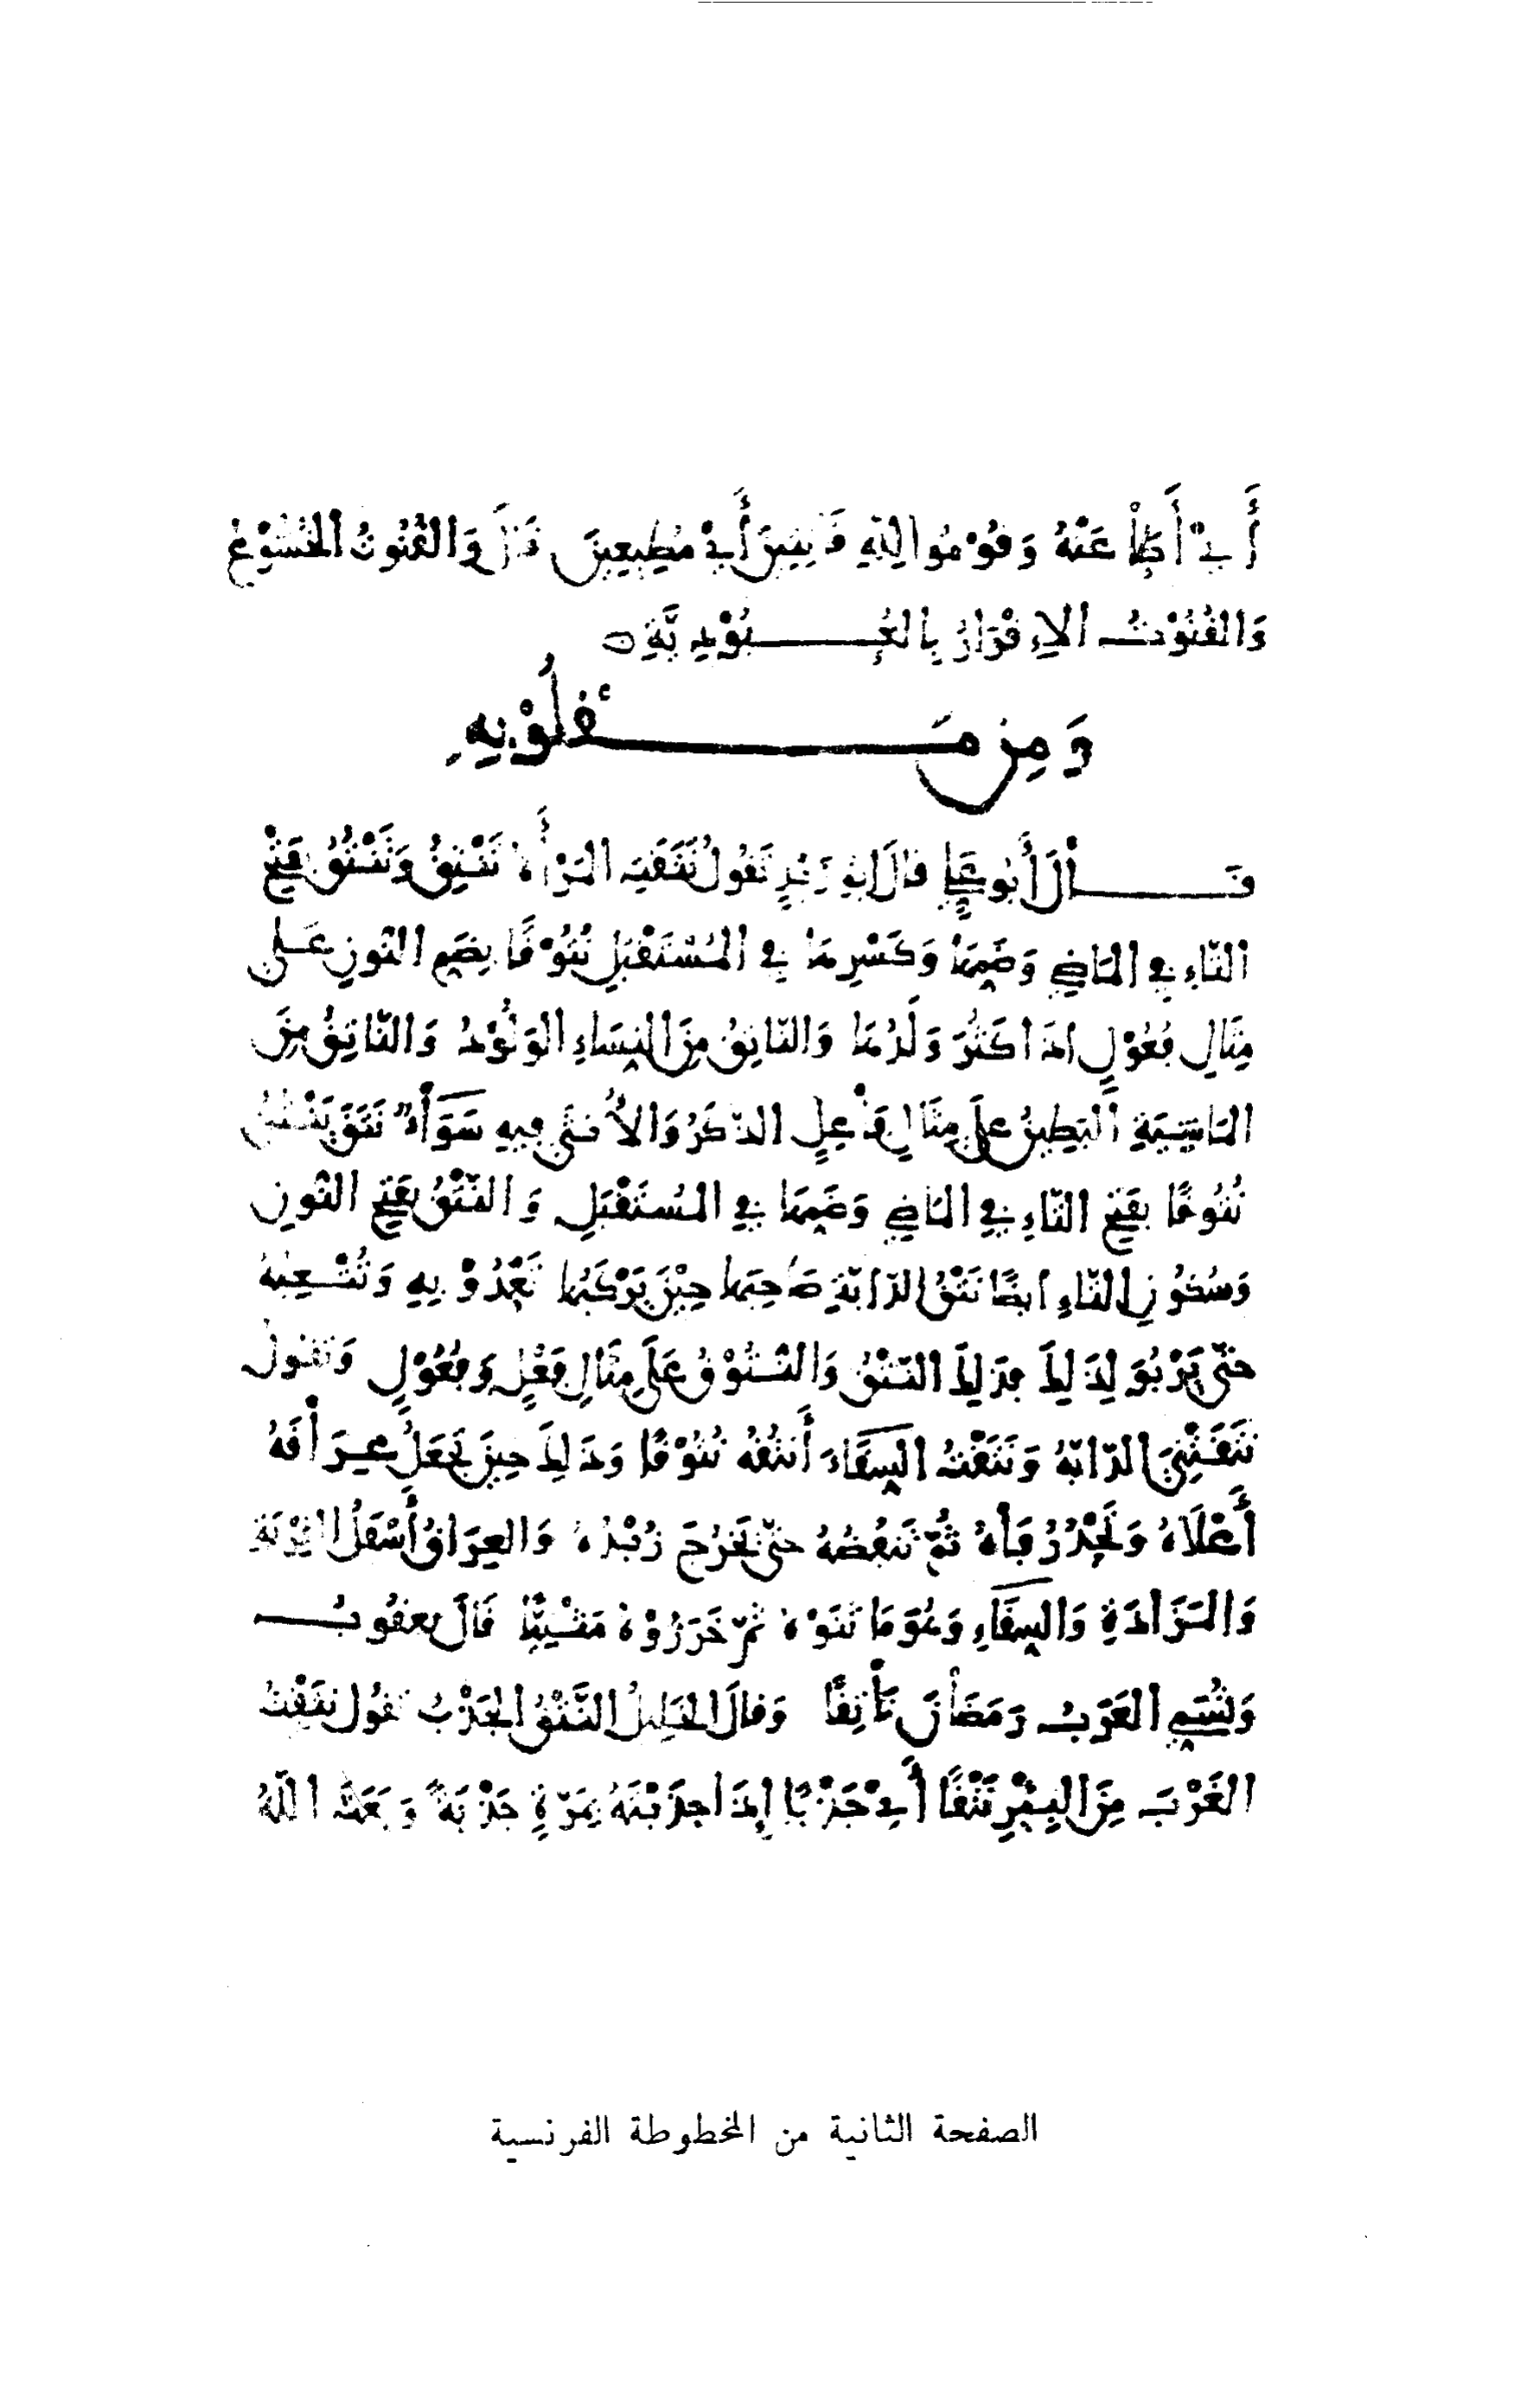 أَيْ أَطَاعَنْهُ وَقُوْمُوا لِلّهِ قَانِتِينَ أَيْ مُطِيعِينَ قَالَ وَالقُنُوتُ الخُشُوعُ
وَالقُنُوْتُ الاِقْرَارُ بِالعُبُوْدِيَّةِ
وَمِن مَقْلُوْبِهِ
قَالَ أَبُو عَلِي قَالَ ابُو زَيْدٍ تَقُولُ نَتَقَتِ المَرْأَةُ تَنْتِقُ وَتَنْتُقُ بِفَتْحِ
التّاءِ فِي المَاضِي وَضَمِّهَا وَكَسْرِهَا فِي المُسْتَقْبَلِ نُتُوْقًا بِضَمِّ النّونِ عَلَى
مِثَالِ فُعُوْلٍ اذَا كَثُرَ وَلَدُهَا وَالنّاتِقُ مِنَ النِّسَاءِ الوَلُوْدُ وَالنّاتِقُ مِنَ
المَاشِيَةِ البَطِينُ عَلَى مِثَالِ فَاعِلٍ الذّكَرُ وَالأُنثَى فِيهِ سَوَآءٌ نَتَقَ يَنْتُقُ
نُتُوقًا بِفَتْحِ التّاءِ فِي المَاضِي وَضَمِّهَا فِي المُسْتَقْبَلِ وَالنّتْقُ بِفَتْحِ النّونِ
وَسُكُونِ التّاءِ ايضًا نَتْقُ الدّابّةِ صَاحِبَهَا حِيْنَ يَرْكَبُهَا تَعْدُوْ بِهِ وَتُتْعِبُهُ
حَتّى يَرْبُوَ لِذَلِكَ فَذَلِكَ النّتْقُ وَالنّتُوْقُ عَلَى مِثَالِ فَعْلٍ وَفُعُوْلٍ وَتَقُولُ
نَتَقَتْنِي الدّابّةُ وَنَتَقْتُ السِّقَاءَ أَنتُقُهُ نُتُوْقًا وَذَلِكَ حِينَ تَجْعَلُ عِرَاقَهُ
أَعْلاَهُ وَتَحْدُرُ فَاهُ ثُمّ تَنفُضُهُ حَتّى تَخْرُجَ زُبْدُهُ وَالعِرَاقُ أَسْفَلُ القِرْبَةِ
وَالمَزَادَةِ وَالسِّقَاءِ وَهُوَ مَا ثَنَوْهُ ثُمّ خَرَزُوْهُ مَثْنِيًّا قَالَ يعقُوبُ
وَتُسَمِّي العَرَبُ رَمَضَانَ نَاتِقًا وَقَالَ الخَلِيلُ النَّتْقُ الجَذْبُ تَقُولُ نَتَقْتُ
الغَرْبَ مِنَ البِئْرِ نَتْقًا أَيْ جَذْبًا إِذَا جذَبْتَهُ بِمَرّةٍ جَذْبَةً وَبَعَثَ اللّهُ
الصفحة الثانية من المخطوطة الفرنسية